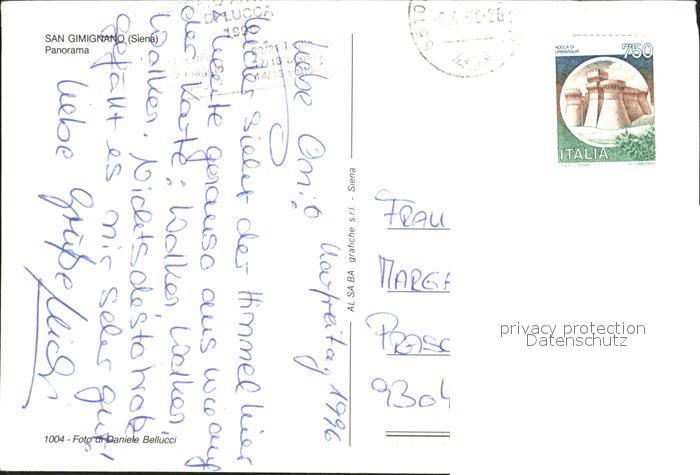 SAN GIMIGNANO (Siena)
Panorama
DI LUCCA
750
ROCCA DI
URBISAGLIA
ITALIA
Liebe Omi!
Karfreitag 1996
sieht der Himmel hier
heute genauso aus wie auf
der Karte: Wolken, Wolken,
Wolken. Nichtsdestotrotz
gefällt es mir sehr gut!
Liebe Grüße
AL.SA.BA. grafiche s.r.l. - Siena
FRAU
MARGA
9304
privacy protection
Datenschutz
1004 - Foto di Daniele Bellucci